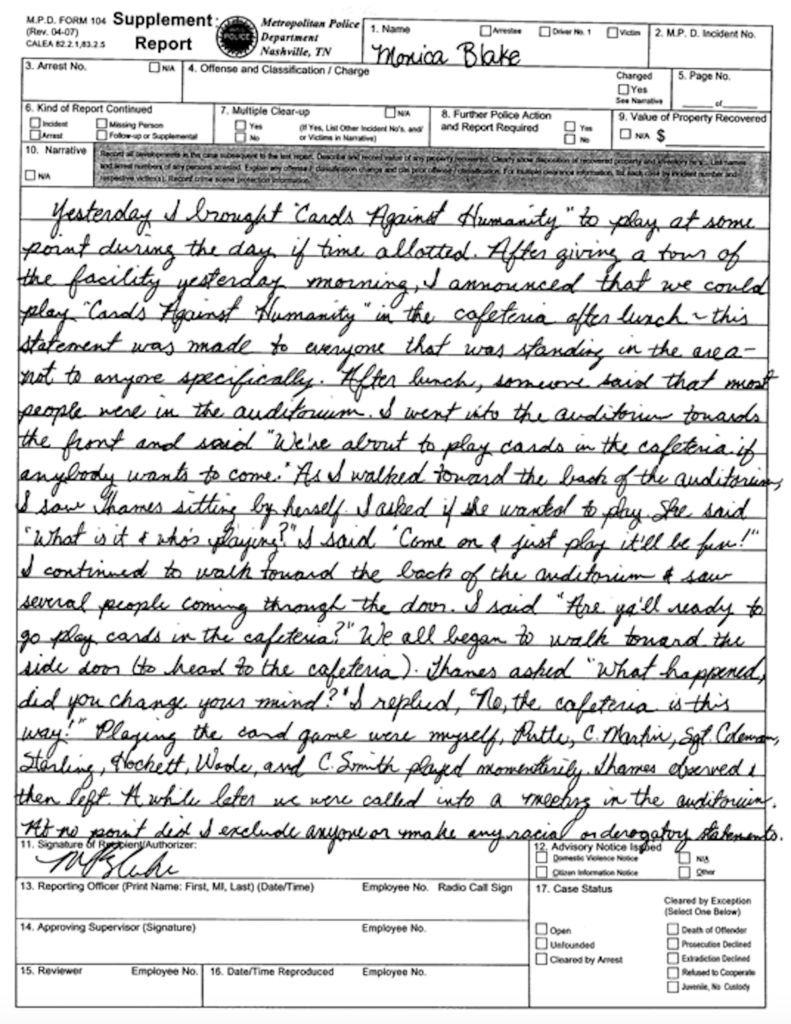 M.P.D. FORM 104
(Rev. 04-07)
CALEA 82.2.1,83.2.5
Supplement
Report
POLICE
Metropolitan Police
Department
Nashville, TN
1. Name
Arrestee
Driver No. 1
Victim
Monica Blake
2. M.P. D. Incident No.
3. Arrest No.
N/A
4. Offense and Classification / Charge
Changed
Yes
See Narrative
5. Page No.
of
6. Kind of Report Continued
Incident
Missing Person
Arrest
Follow-up or Supplemental
7. Multiple Clear-up
N/A
Yes
No
(If Yes, List Other Incident No's. and/
or Victims in Narrative)
8. Further Police Action
and Report Required
Yes
No
9. Value of Property Recovered
N/A $
10. Narrative
N/A
Record all developments in the case subsequent to the last report. Describe and record value of any property recovered. Clearly show disposition of recovered property and inventory No.'s. List names
and arrest numbers of any persons arrested. Explain any offense / classification change and cite prior offense / classification. For multiple clearance information, list each case by incident number and
respective victim(s). Record crime scene protection information.
Yesterday I brought "Cards Against Humanity" to play at some
point during the day if time allotted. After giving a tour of
the facility yesterday morning, I announced that we could
play "Cards Against Humanity" in the cafeteria after lunch - this
statement was made to everyone that was standing in the area -
not to anyone specifically. After lunch, someone said that most
people were in the auditorium. I went into the auditorium towards
the front and said "We're about to play cards in the cafeteria if
anybody wants to come." As I walked toward the back of the auditorium,
I saw Thames sitting by herself. I asked if she wanted to play. She said
"What is it & who's playing?" I said "Come on & just play it'll be fun!"
I continued to walk toward the back of the auditorium & saw
several people coming through the door. I said "Are ya'll ready to
go play cards in the cafeteria?" We all began to walk toward the
side door (to head to the cafeteria). Thames asked "What happened,
did you change your mind?" I replied, "No, the cafeteria is this
way!" Playing the card game were myself, C. Martin, Sgt. Coleman,
Starling, Hockett, Wade, and C. Smith played momentarily. Thames observed &
then left. A while later we were called into a meeting in the auditorium.
At no point did I exclude anyone or make any racial or derogatory statements.
11. Signature of Recipient/Authorizer:
M Blake
12. Advisory Notice Issued
Domestic Violence Notice
N/A
Citizen Information Notice
Other
13. Reporting Officer (Print Name: First, MI, Last) (Date/Time)
Employee No.
Radio Call Sign
14. Approving Supervisor (Signature)
Employee No.
15. Reviewer
Employee No.
16. Date/Time Reproduced
Employee No.
17. Case Status
Open
Unfounded
Cleared by Arrest
Cleared by Exception
(Select One Below)
Death of Offender
Prosecution Declined
Extradition Declined
Refused to Cooperate
Juvenile, No Custody